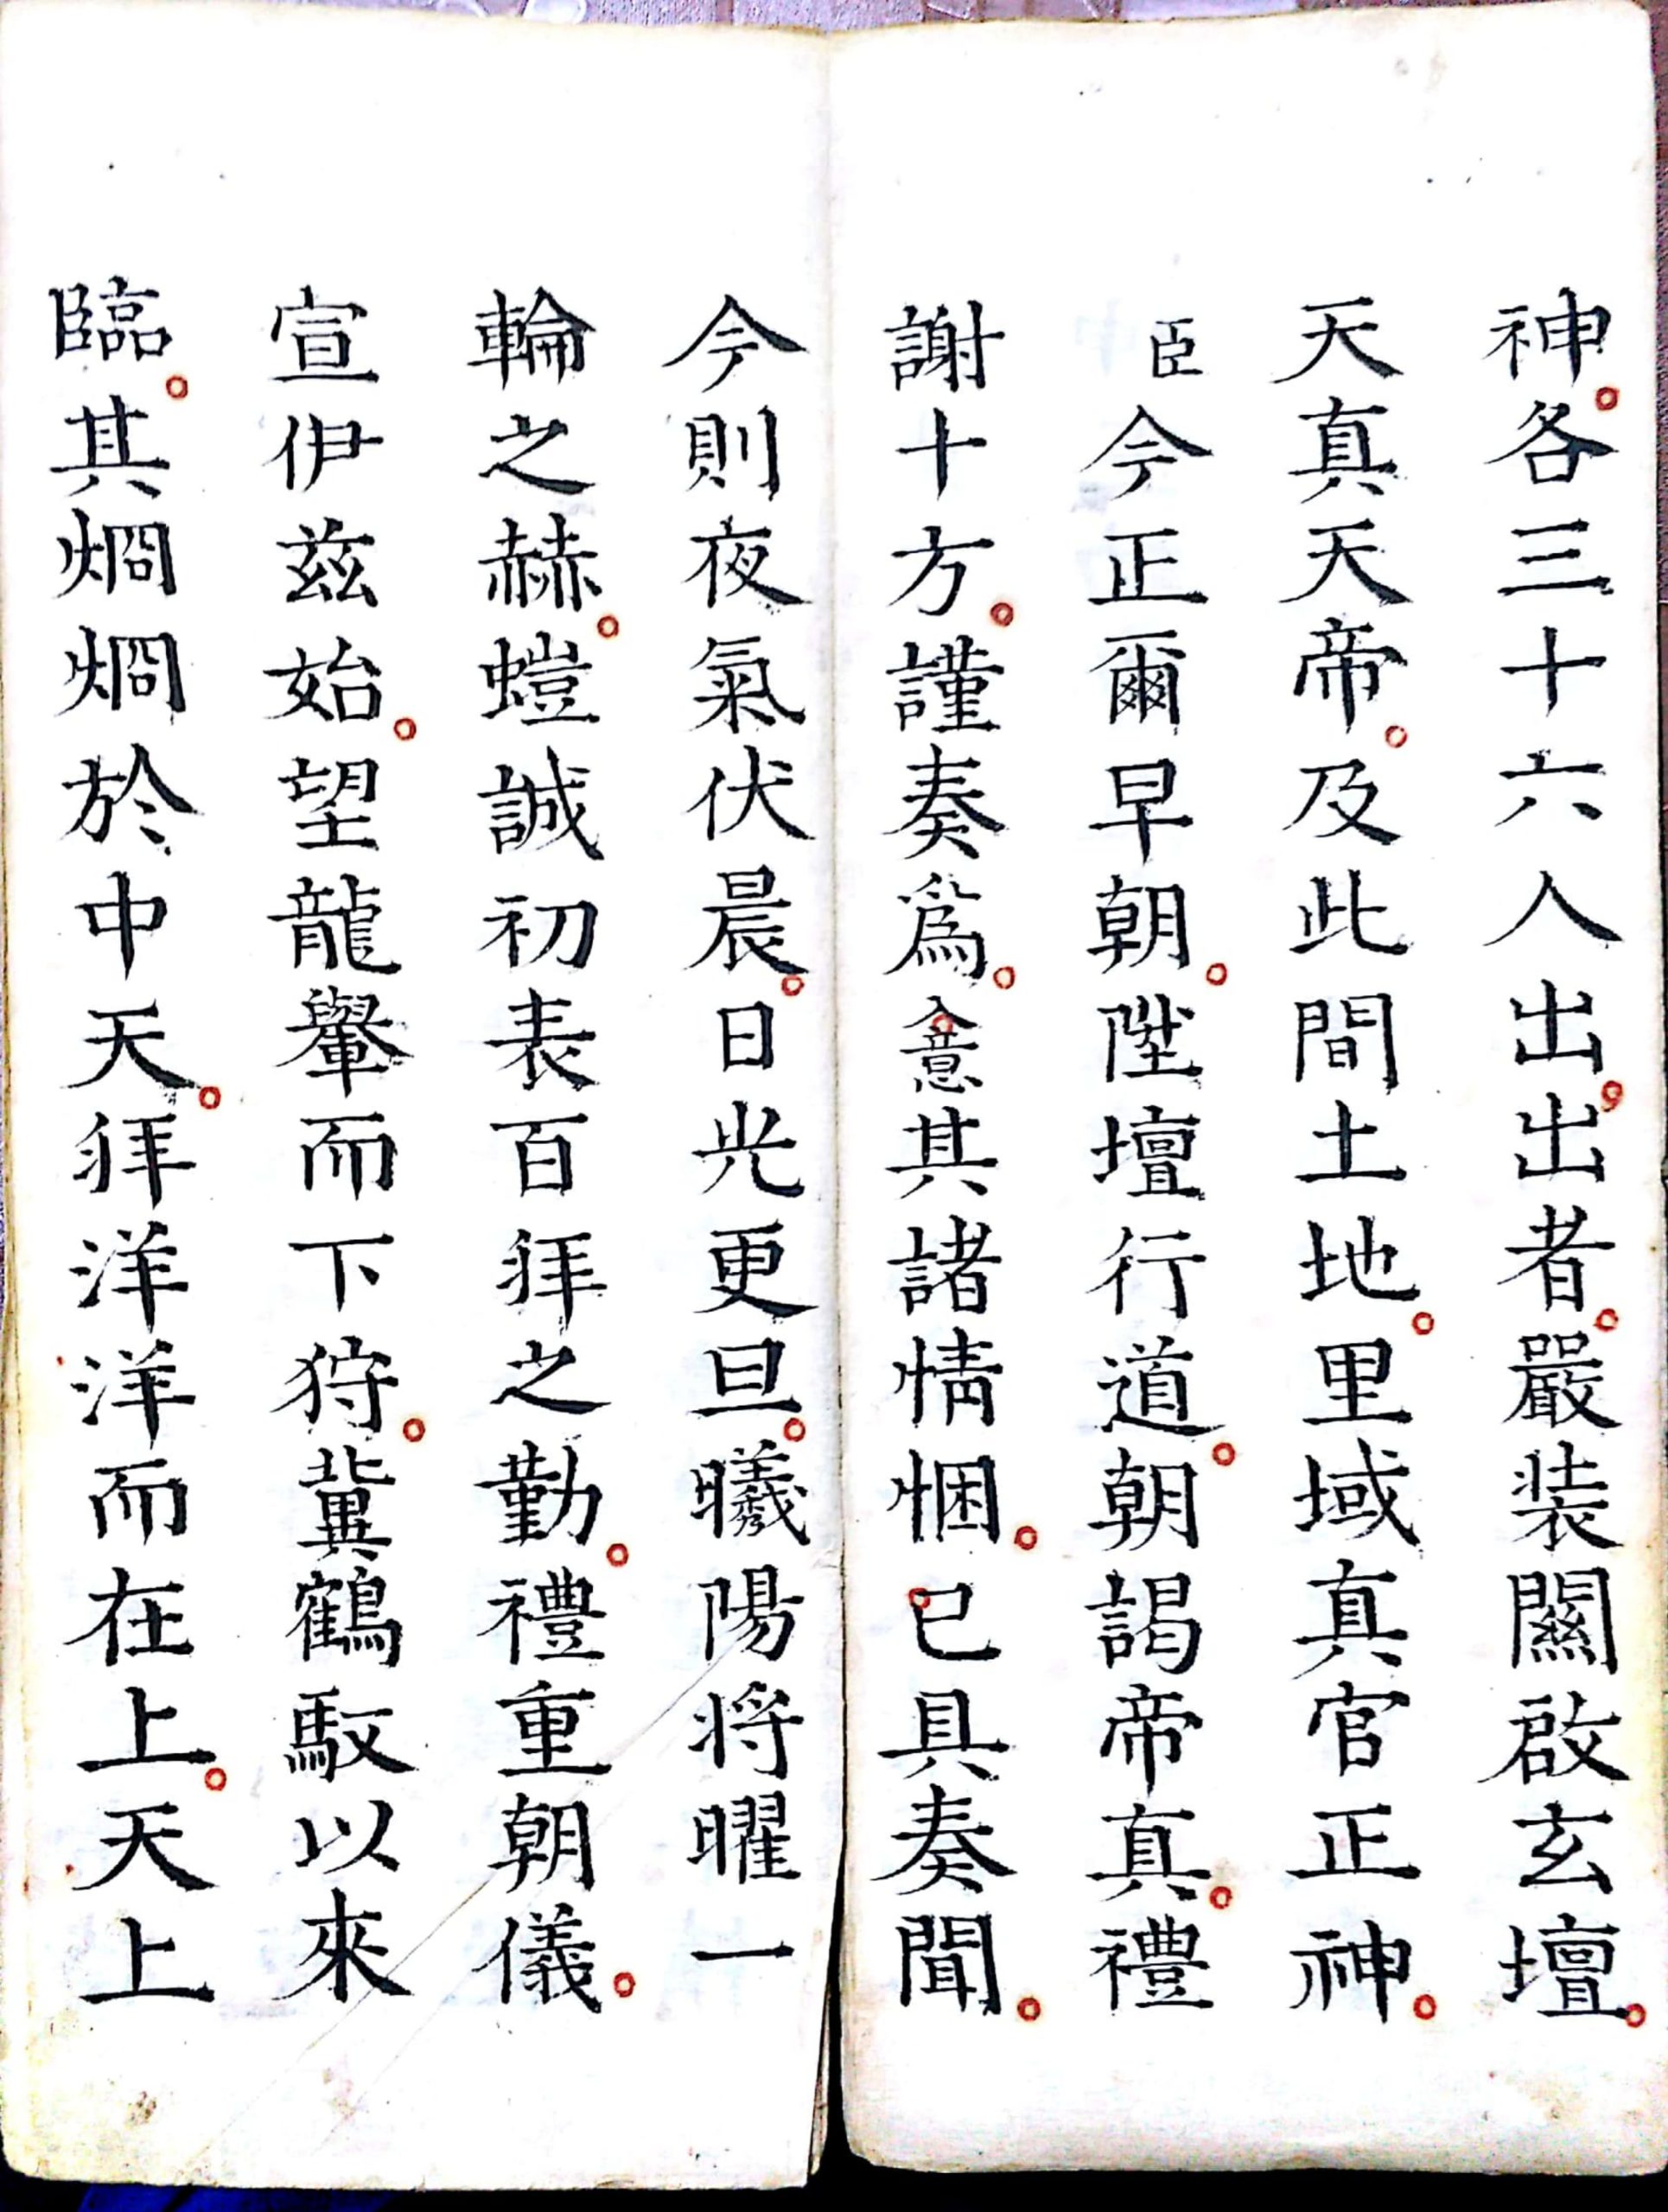 神。各三十六人出。出者。嚴装關啟玄壇。
天真天帝。及此間土地。里域真官正神。
臣今正爾早朝。陞壇行道。朝謁帝真。禮
謝十方。謹奏為。入意其諸情悃。已具奏聞。
今則夜氣伏晨。日光更旦。曦陽将曜一
輪之赫。螘誠初表百拜之勤。禮重朝儀。
宣伊兹始。望龍轝而下狩。冀鶴馭以來
臨。其烱烱於中天。拜洋洋而在上。天上